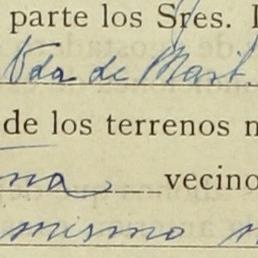 parte los Sres.
Vda de Mart
de los terrenos
na vecino
mismo